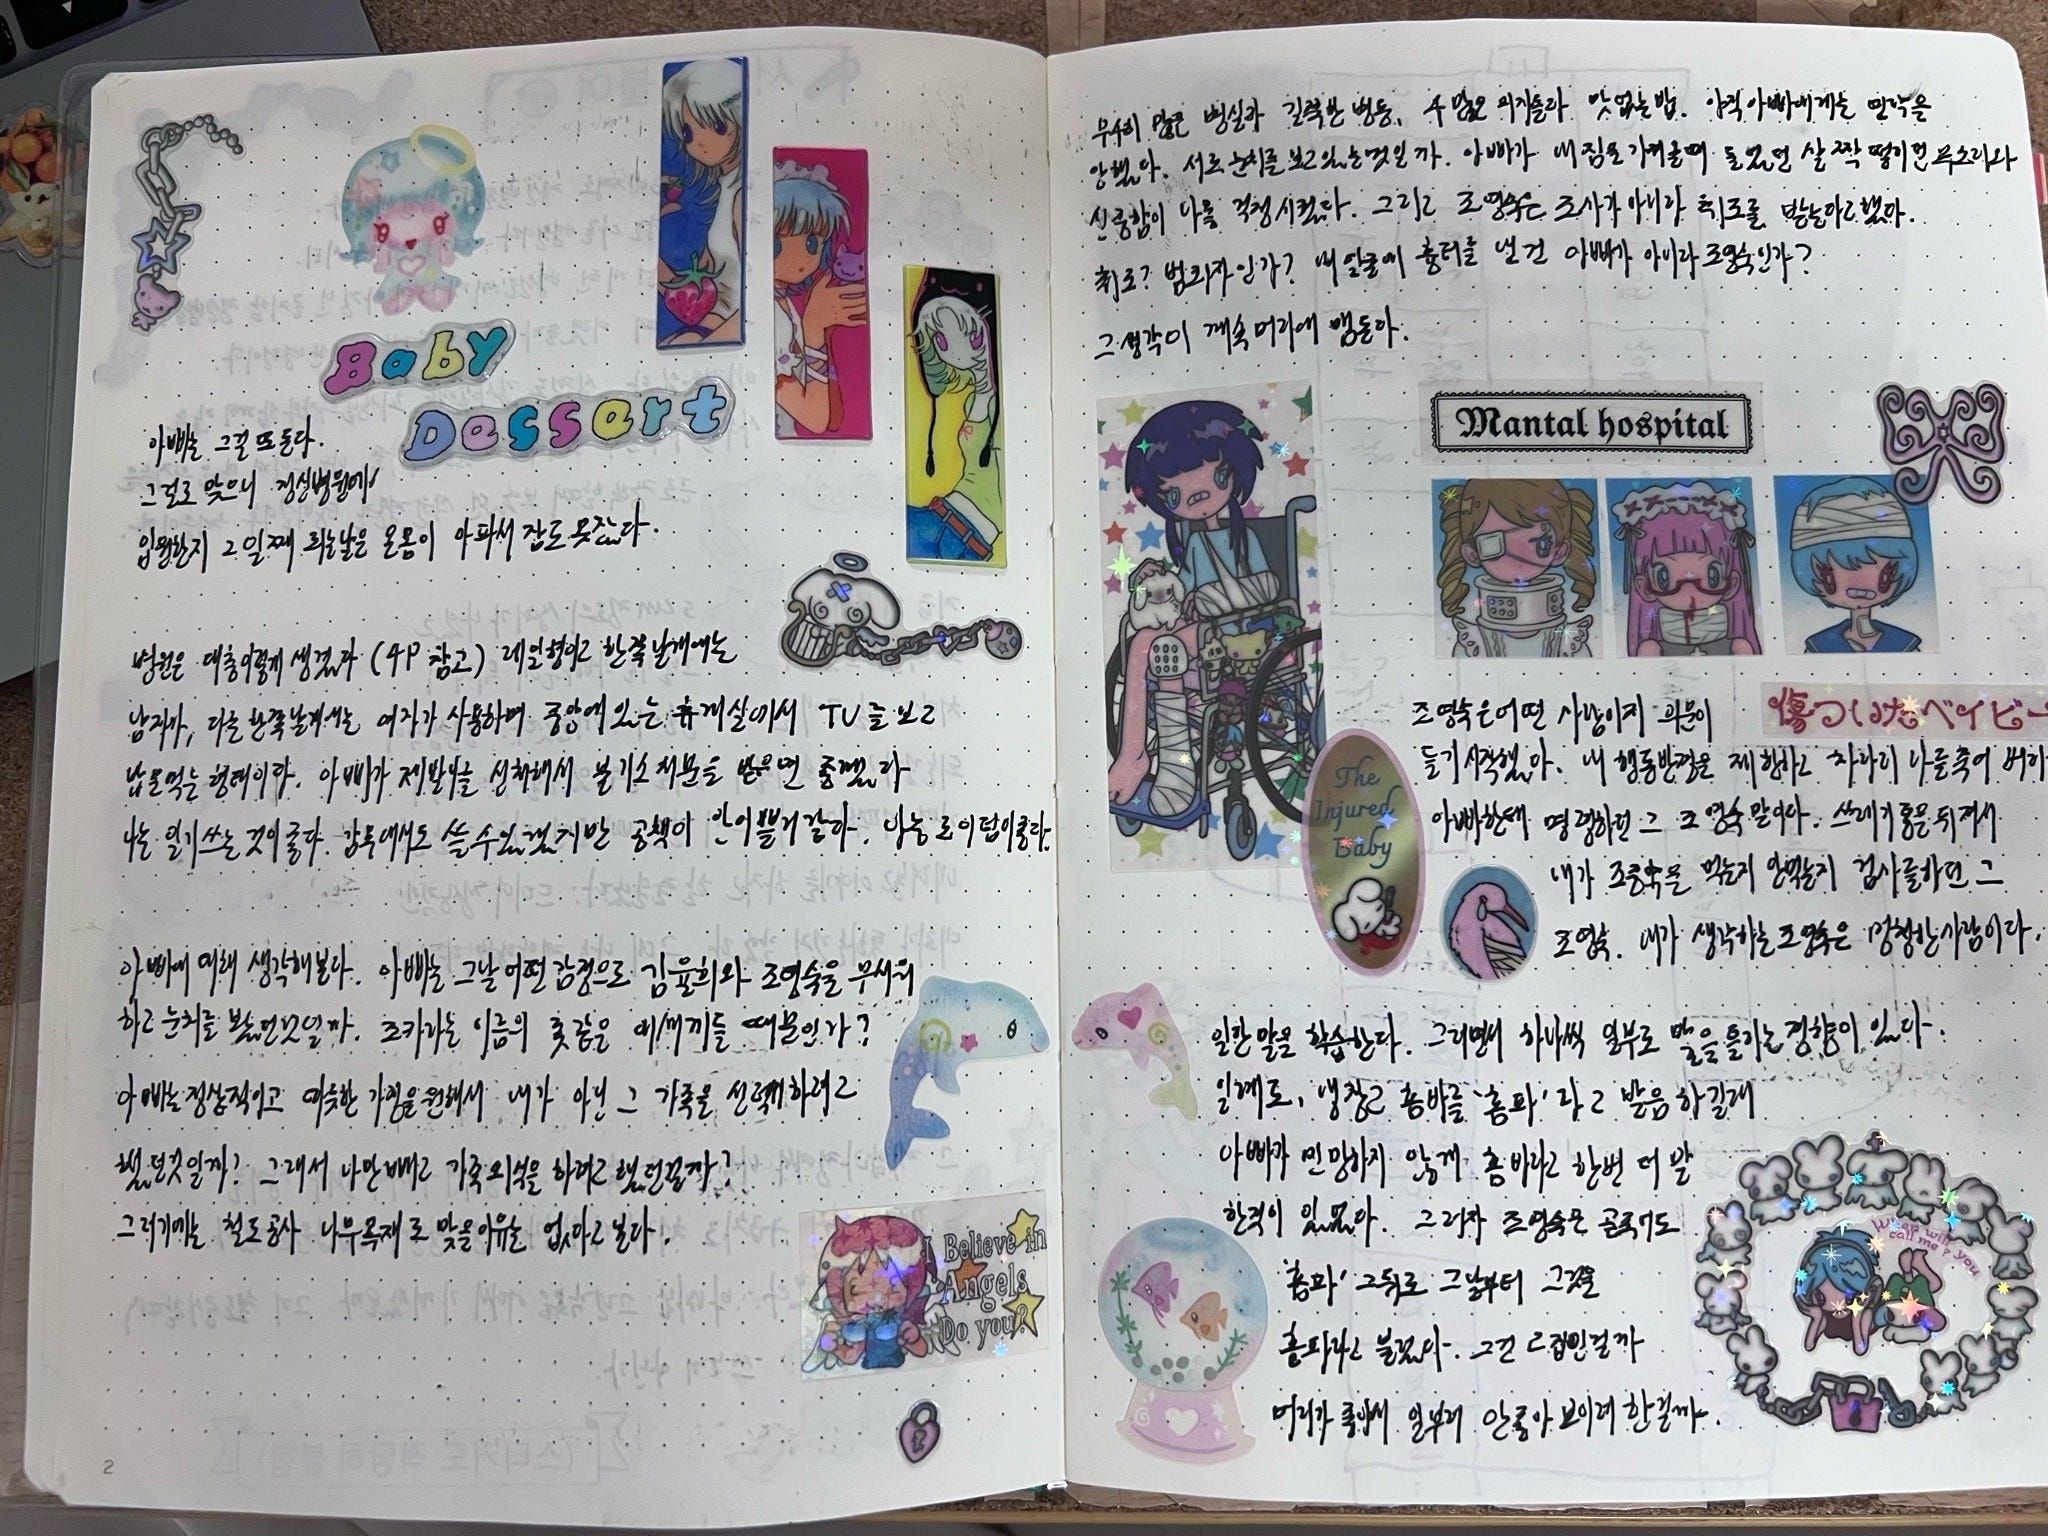 Baby
Dessart
아빠는 그걸 또 든다.
그걸로 맞으니 정신병원에
입원한지 2일째 되는날은 온몸이 아파서 잠도 못잤다.
병원은 대충이렇게 생겼다 (4P 참고) 레일형이고 한쪽 날개에는
남자가, 다른 한쪽날개에서는 여자가 사용하며 중앙에 있는 휴게실에서 TV를 보고
밥을먹는 형태이다. 아빠가 제발 신청해서 불기소처분을 받으면 좋겠다
나는 일기쓰는 것이 좋다. 감옥에서도 쓸 수 있겠지만 공책이 안이쁠거 같다. 나는 로이텀이좋다.
아빠에 대해 생각해본다. 아빠는 그날 어떤 감정으로 김율희와 조영숙을 무서워
하고 눈치를 봤던것일까. 조카라는 이름의 좆같은 애새끼들 때문인가?
아빠는 정상적이고 따뜻한 가정을 원해서 내가 아닌 그 가족을 선택하려고
했던것일까? 그래서 나만 빼고 가족외식을 하려고 했던걸까?
그러기에는 철도공사 나무목재로 맞을 이유는 없다고 본다.
I Believe in
Angels
Do you?
2
무수히 많은 병실과 길쭉한 병동, 수많은 피지들과 맛없는밥. 아직 아빠에게는 연락을
안했다. 서로 눈치를 보고있는것일까. 아빠가 내 짐을 가져올때 들었던 살짝 떨리던 목소리와
신중함이 나를 걱정시켰다. 그리고 조영숙은 조사가 아니라 취조를 받는다고했다.
취조? 범죄자인가? 내 얼굴에 흉터를 낸 건 아빠가 아니라 조영숙인가?
그 생각이 계속 머리에 맴돈다.
Mantal hospital
傷ついたベイビー
The
Injured
Baby
조영숙은어떤 사람이지 의문이
들기 시작했다. 내 행동반경을 제한하고 차라리 나를 죽여 버리
아빠한테 명령하던 그 조영숙말이다. 쓰레기통을 뒤져서
내가 조영숙을 먹는지 안먹는지 검사를하던 그
조영숙. 내가 생각하는 조영숙은 멍청한사람이다.
일단 말을 학습한다. 그러면서 하나씩 일부로 말을 틀기는 경향이 있다.
일례로, 냉장고 홈바를 '홈파' 라고 발음 하길래
아빠가 민망하지 않게 홈바라고 한번 더 말
한적이 있었다. 그러자 조영숙은 골곡이도
'홈파' 그뒤로 그날부터 그것을
홈파라고 불렀다. 그건 고집인걸까
머리가 좋아서 일부러 안좋아 보이려 한걸까.
When will you
call me?